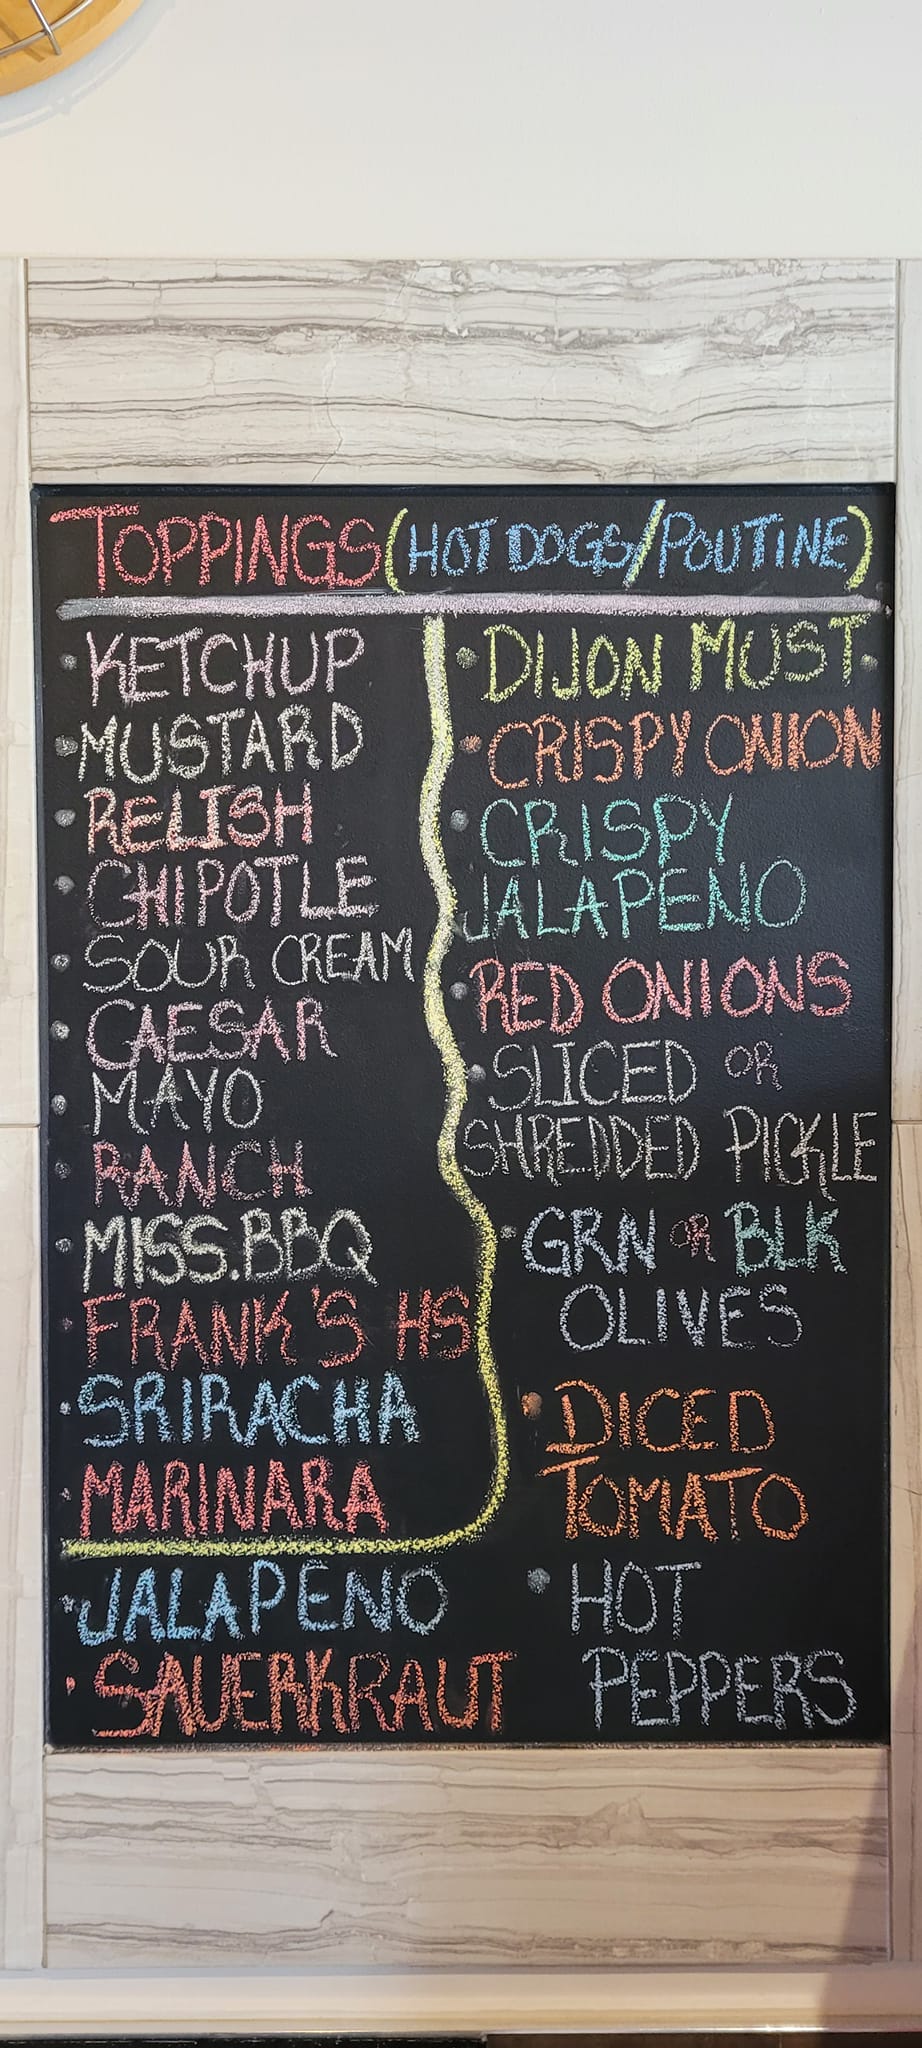 TOPPINGS (HOT DOGS/POUTINE)
• KETCHUP
• MUSTARD
• RELISH
• CHIPOTLE
• SOUR CREAM
• CAESAR
• MAYO
• RANCH
• MISS. BBQ
• FRANK'S HS
• SRIRACHA
• MARINARA
• JALAPENO
• SAUERKRAUT
• DIJON MUST.
• CRISPY ONION
• CRISPY
JALAPENO
• RED ONIONS
• SLICED OR
SHREDDED PICKLE
• GRN OR BLK
OLIVES
• DICED
TOMATO
• HOT
PEPPERS